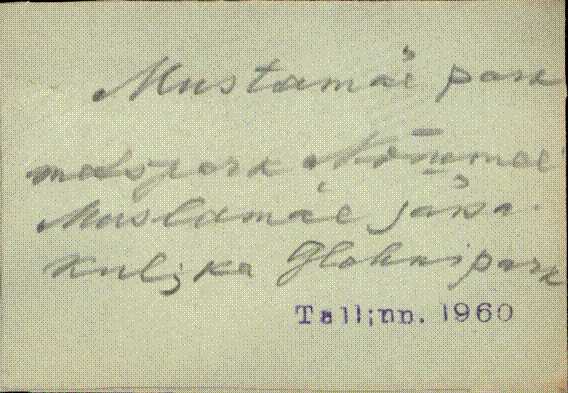 Mustamäe park
metspark Nõmmel
Mustamäe jaksa.
Kuljka Glehnipark
Tallinn. 1960